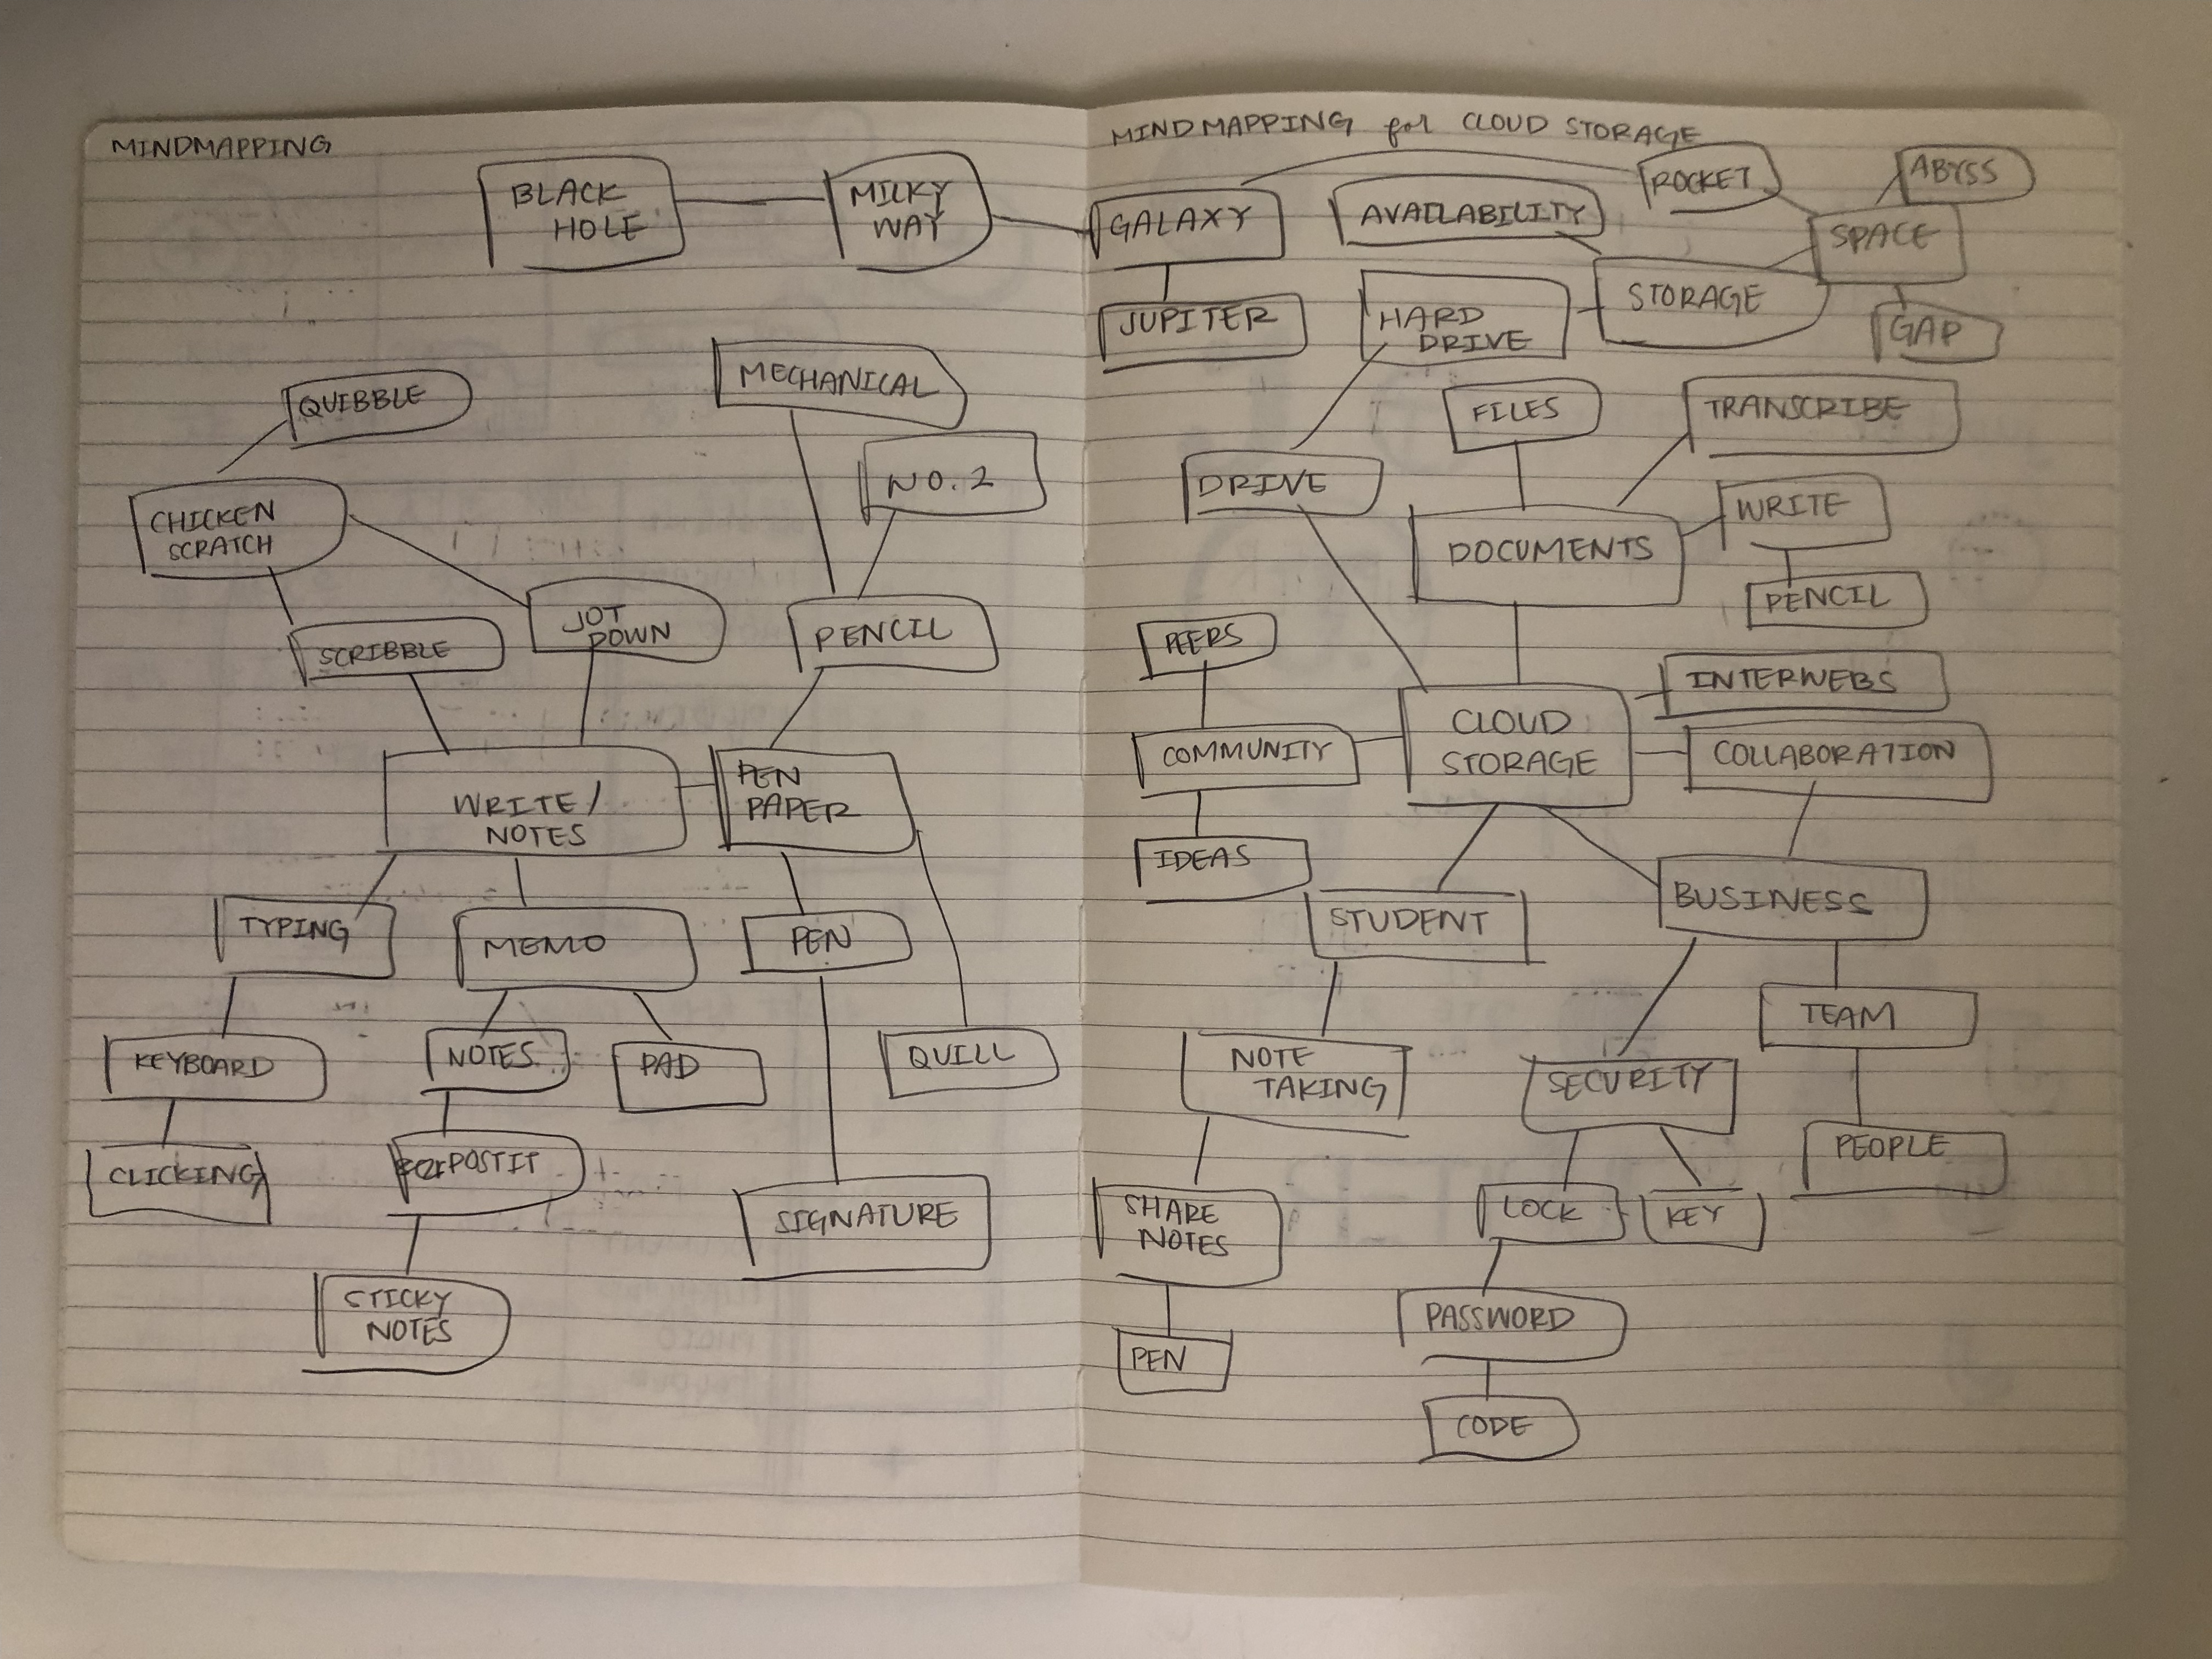 MINDMAPPING
BLACK
HOLE
MILKY
WAY
QUIBBLE
MECHANICAL
NO.2
CHICKEN
SCRATCH
JOT
DOWN
SCRIBBLE
PENCIL
WRITE/
NOTES
PEN
PAPER
TYPING
MEMO
PEN
KEYBOARD
NOTES
PAD
QUILL
CLICKING
POSTIT
SIGNATURE
STICKY
NOTES
MINDMAPPING for CLOUD STORAGE
GALAXY
AVAILABILITY
ROCKET
ABYSS
SPACE
JUPITER
HARD
DRIVE
STORAGE
GAP
FILES
TRANSCRIBE
DRIVE
DOCUMENTS
WRITE
PENCIL
PEERS
INTERWEBS
COMMUNITY
CLOUD
STORAGE
COLLABORATION
IDEAS
STUDENT
BUSINESS
TEAM
NOTE
TAKING
SECURITY
PEOPLE
SHARE
NOTES
LOCK
KEY
PASSWORD
PEN
CODE